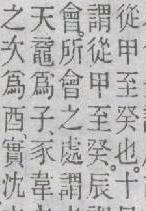 從甲至癸也。十
謂從甲至癸。辰
會。所會之處謂
天黿爲子、豕韋
之次爲酉、實沈